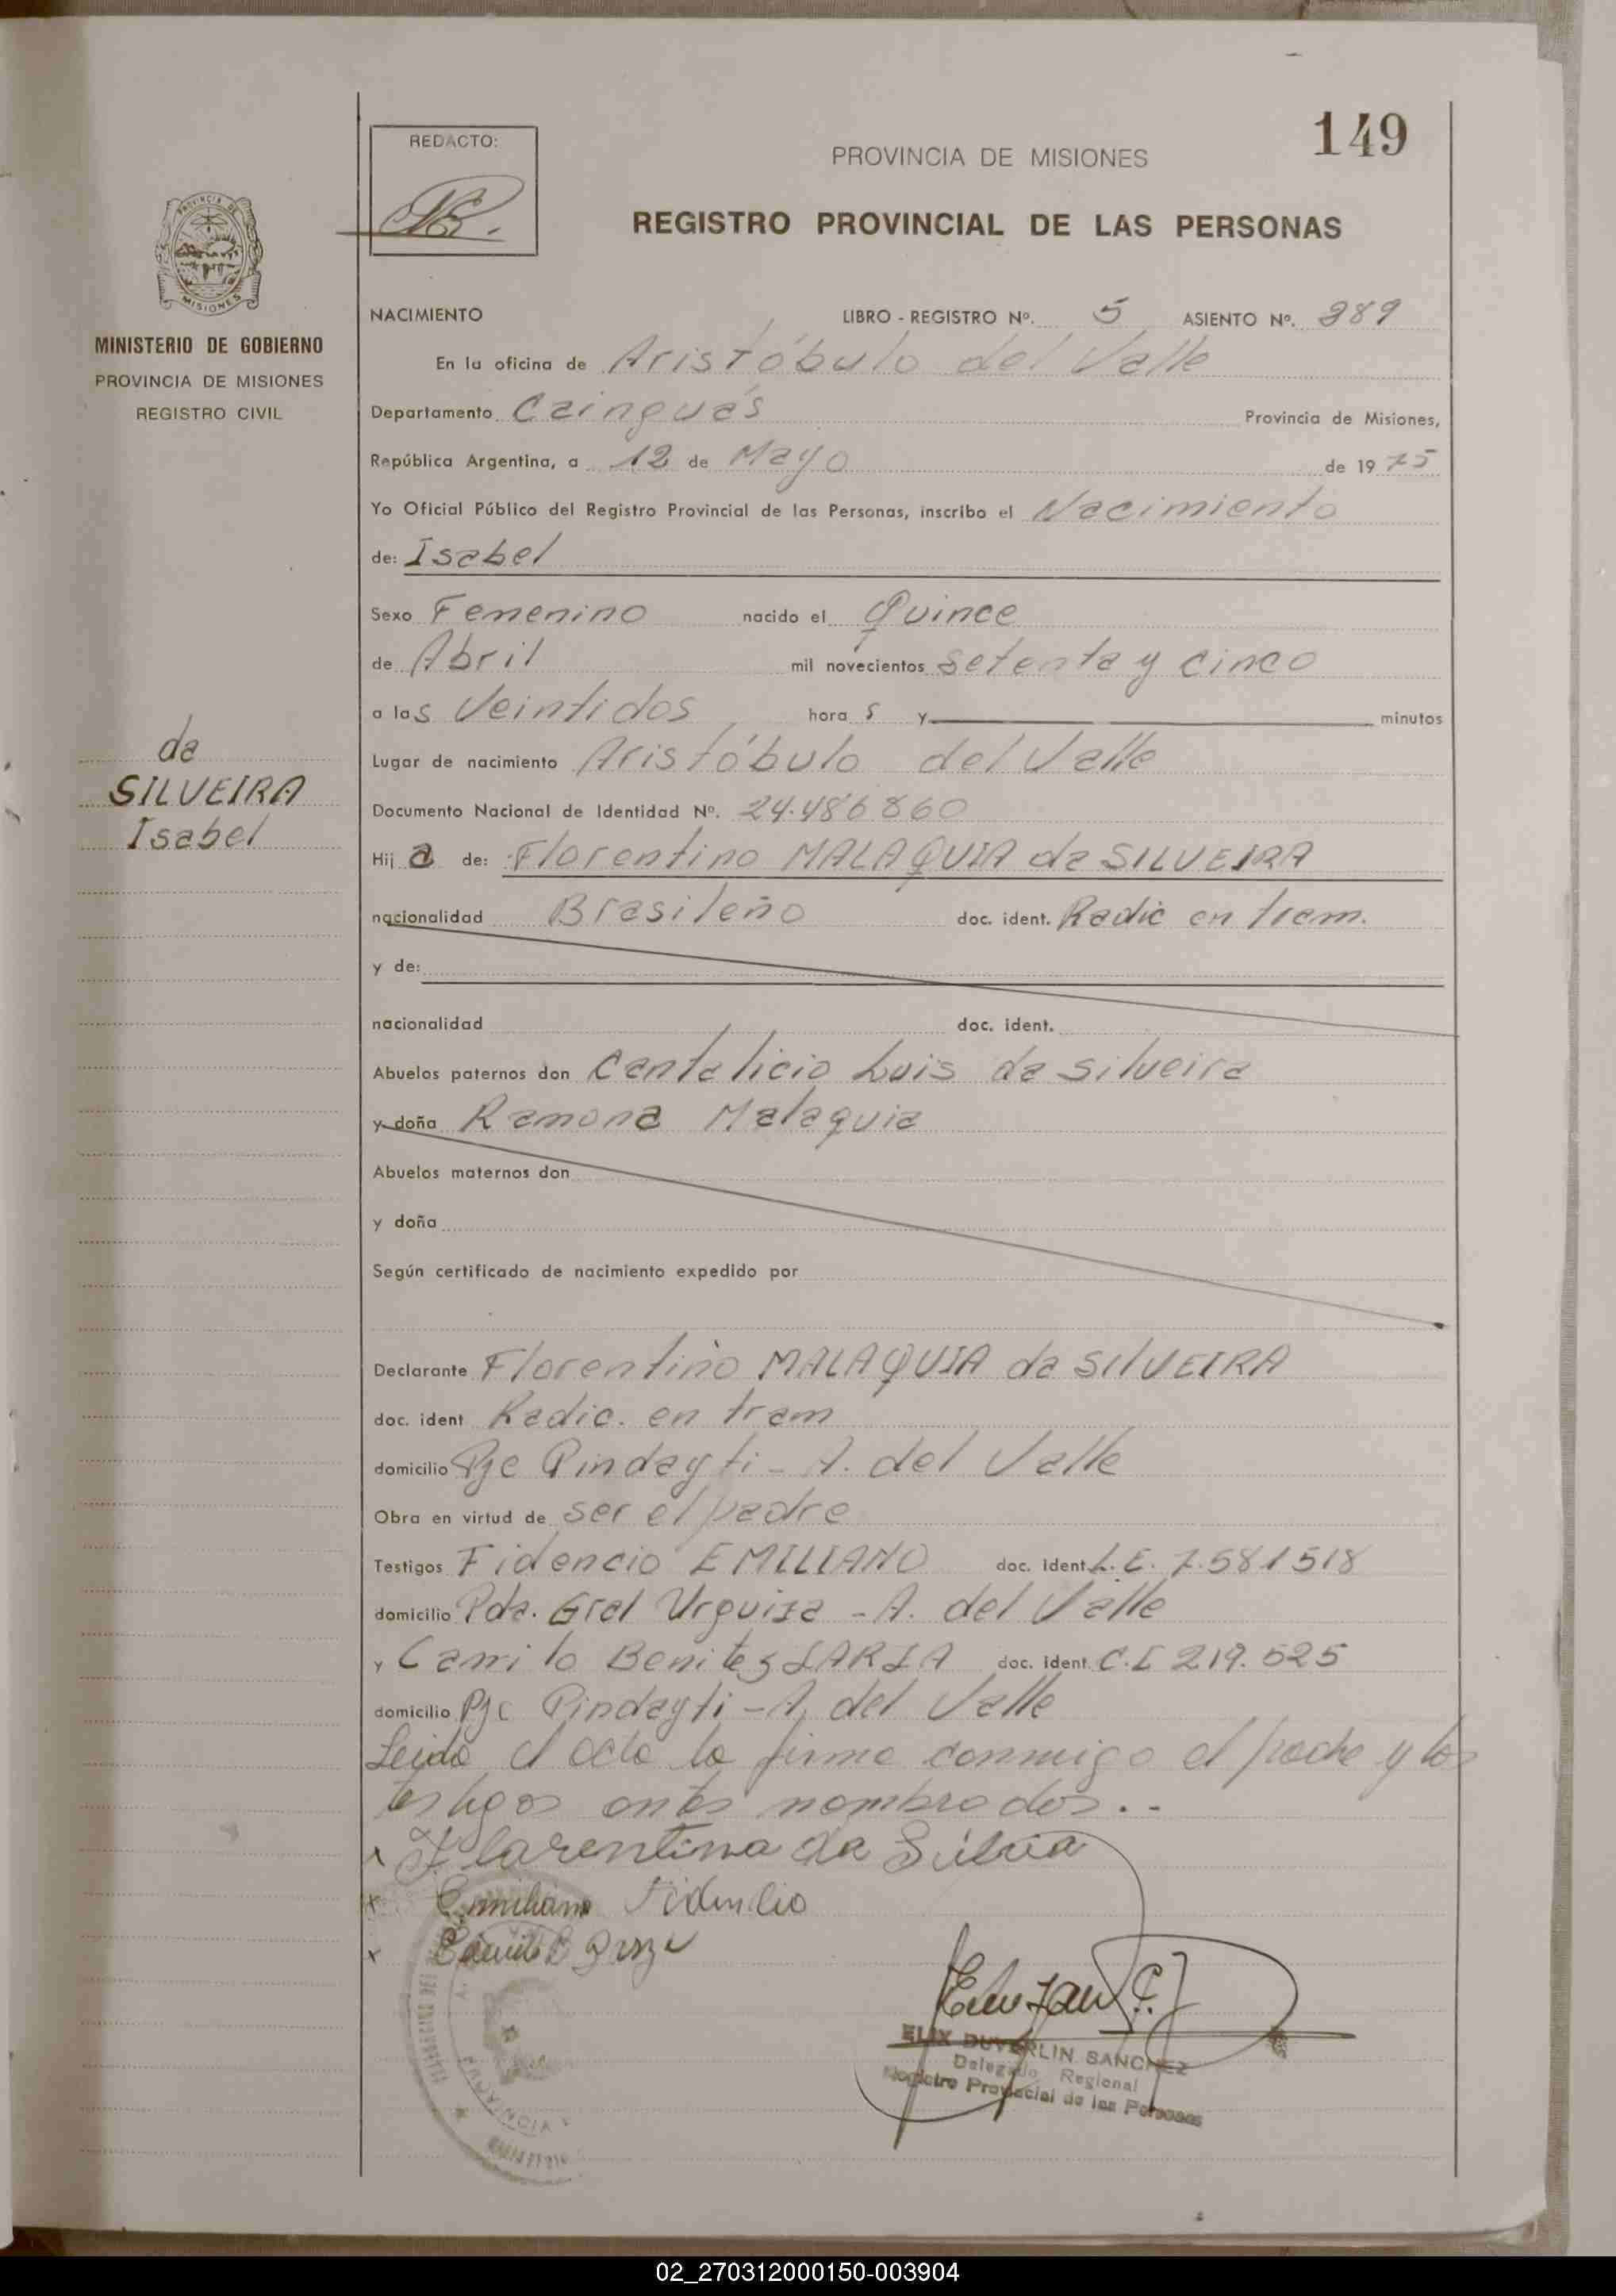 149
REDACTO:
PROVINCIA DE MISIONES
REGISTRO PROVINCIAL DE LAS PERSONAS
MISIONES
MINISTERIO DE GOBIERNO
PROVINCIA DE MISIONES
REGISTRO CIVIL
NACIMIENTO LIBRO - REGISTRO Nº. 5 ASIENTO Nº. 389
En la oficina de Aristóbulo del Valle
Departamento Cainguás Provincia de Misiones,
República Argentina, a 12 de Mayo de 1975
Yo Oficial Público del Registro Provincial de las Personas, inscribo el Nacimiento
de: Isabel
Sexo Femenino nacido el Quince
de Abril mil novecientos setenta y cinco
a las Veintidos hora s y minutos
da
SILVEIRA
Isabel
Lugar de nacimiento Aristóbulo del Valle
Documento Nacional de Identidad Nº. 24.486860
Hij a de: Florentino MALAQUIA da SILVEIRA
nacionalidad Brasileño doc. ident. Radic en tram.
y de:
nacionalidad doc. ident.
Abuelos paternos don Cantalicio Luis da Silveira
y doña Ramona Malaquia
Abuelos maternos don
y doña
Según certificado de nacimiento expedido por
Declarante Florentino MALAQUIA da SILVEIRA
doc. ident Radic. en tram
domicilio Pje Pindayti - A. del Valle
Obra en virtud de ser el padre
Testigos Fidencio EMILIANO doc. ident L.E. 7.581518
domicilio Pda. Gral Urquiza - A. del Valle
y Camilo Benitez doc. ident. C.I 219.525
domicilio Pje Pindayti - A. del Valle
Leido el acta la firma conmigo el padre y los
testigos antes nombrados..-
x Florentino da Silvia
x Emiliano Fidencio
x
ELIX DUVERLIN SANCHEZ
Delegado Regional
Registro Provincial de las Personas
02_270312000150-003904